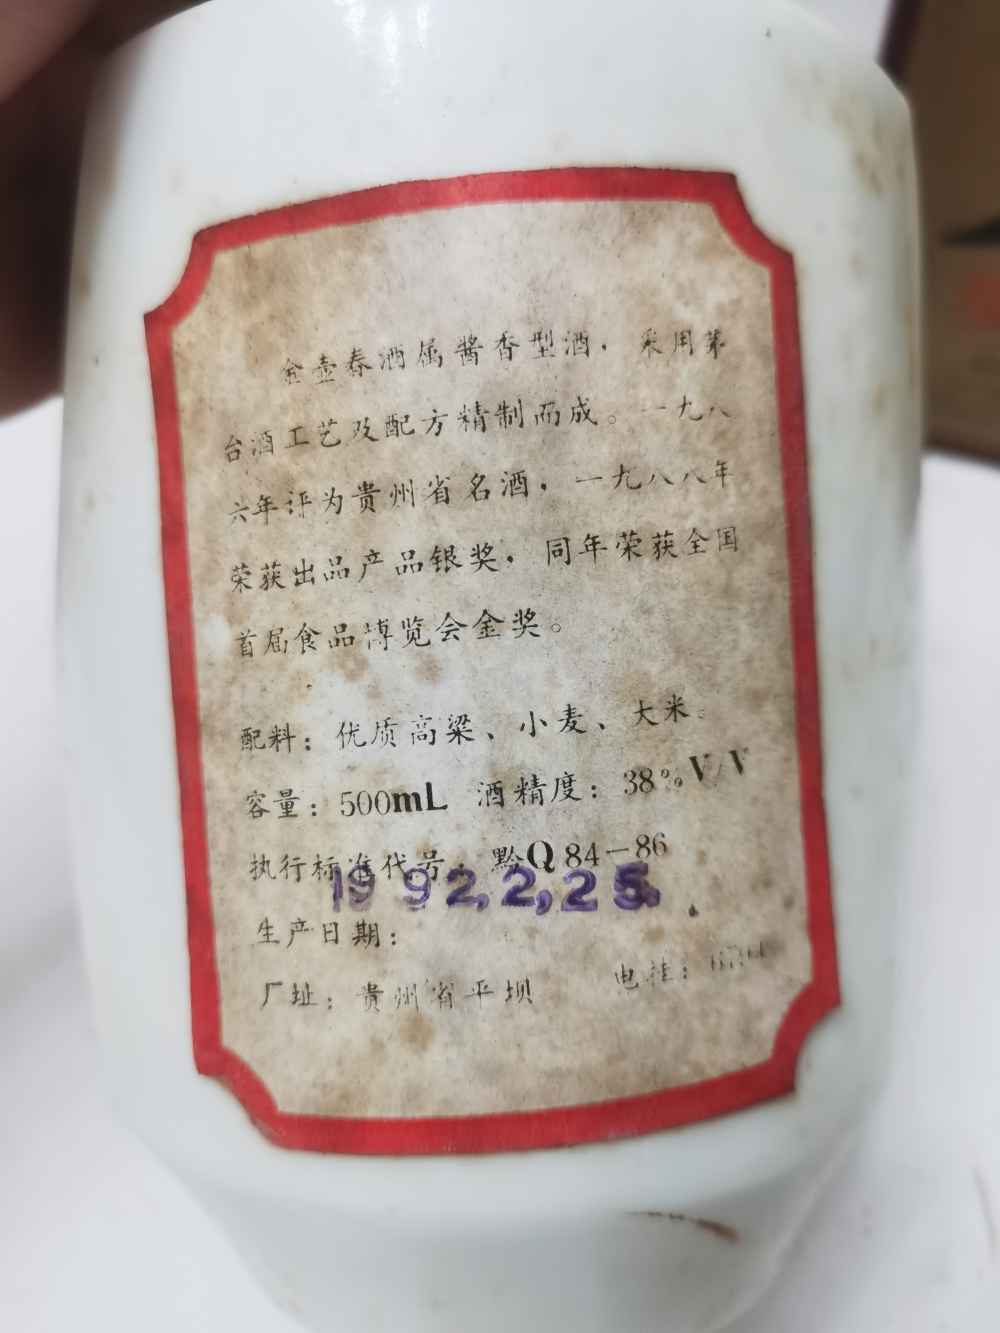 金壶春酒属酱香型酒，采用茅
台酒工艺及配方精制而成。一九八
六年评为贵州省名酒，一九八八年
荣获出品产品银奖，同年荣获全国
首届食品博览会金奖。
配料：优质高粱、小麦、大米。
容量：500mL 酒精度：38%V/V
执行标准代号：黔Q84-86
1992.2.25.
生产日期：
厂址：贵州省平坝 电挂：